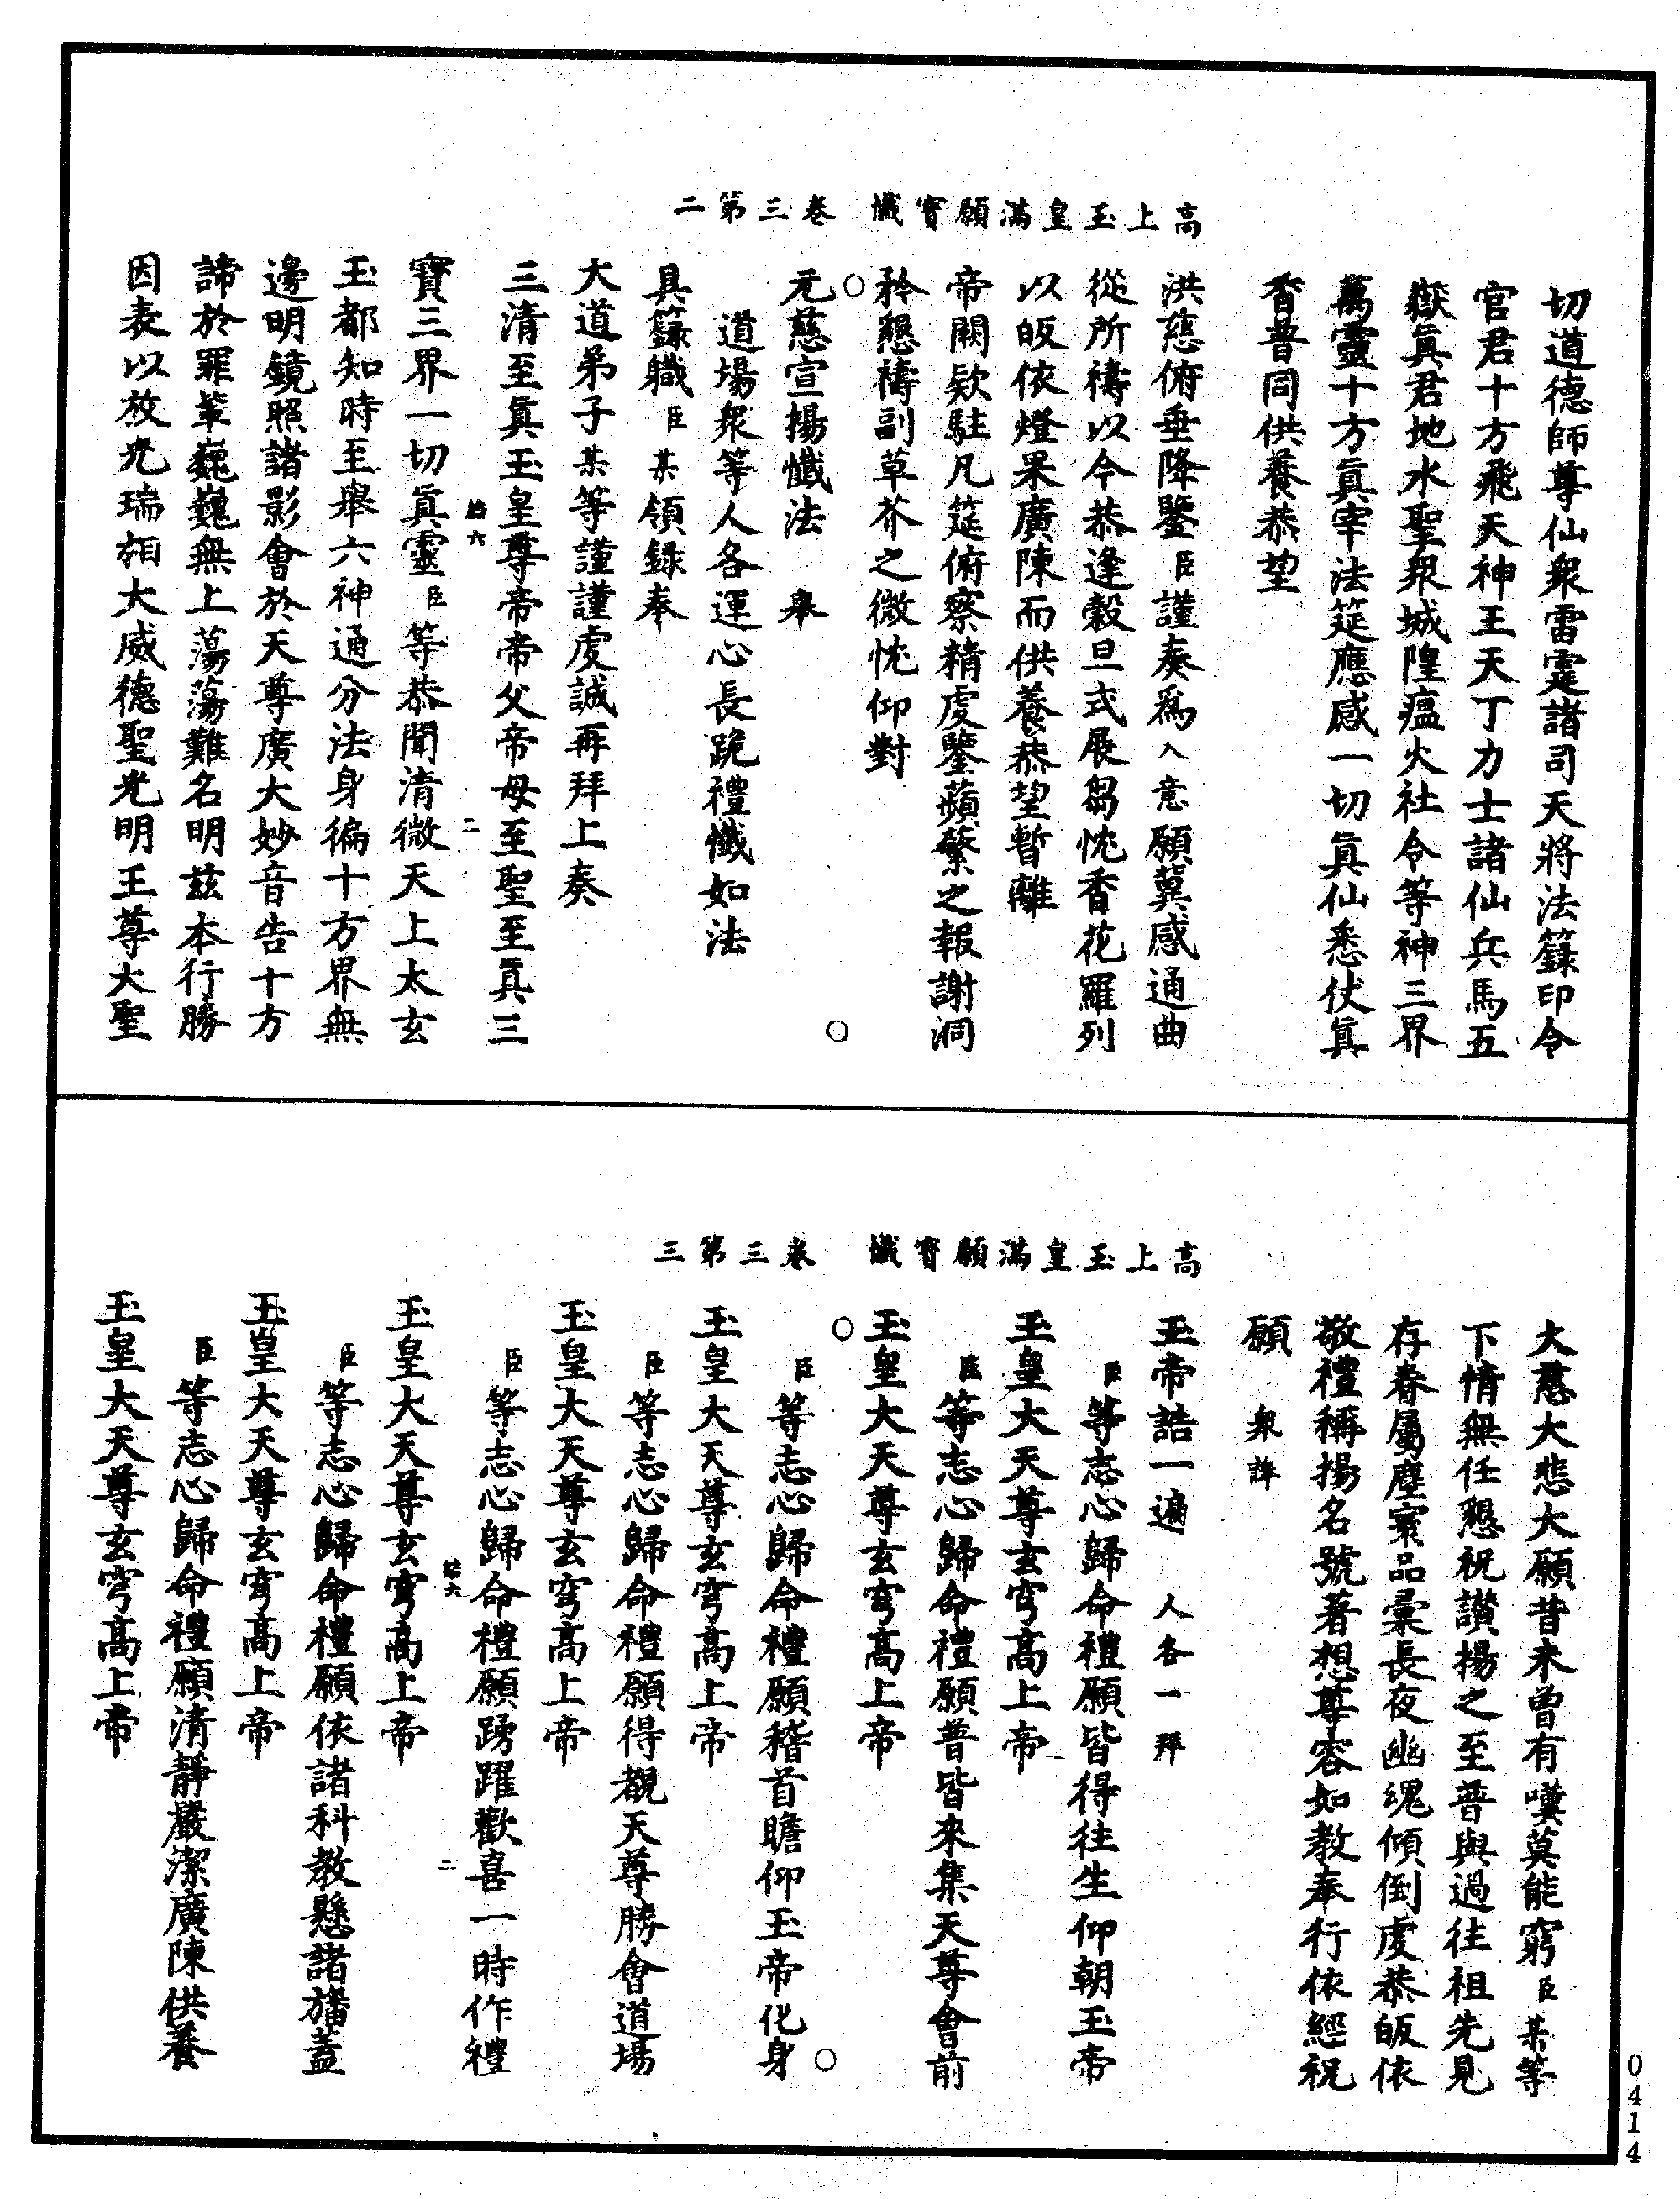 切道德師尊仙衆雷霆諸司天將法籙印令
官君十方飛天神王天丁力士諸仙兵馬五
嶽眞君地水聖衆城隍瘟火社令等神三界
萬靈十方眞宰法筵應感一切眞仙悉伏眞
香普同供養恭望
高上玉皇滿願寶懺 卷三第二
洪慈俯垂降鑒臣謹奏爲入意願冀感通曲
從所禱以今恭逢穀旦式展芻忱香花羅列
以皈依燈果廣陳而供養恭望暫離
帝闕欵駐凡筵俯察精虔鑒蘋蘩之報謝洞
矜懇禱副草芥之微忱仰對
元慈宣揚懺法 舉
道場衆等人各運心長跪禮懺如法
具籙職臣某領錄奉
大道弟子某等謹謹虔誠再拜上奏
三清至眞玉皇尊帝帝父帝母至聖至眞三
給六 二
寶三界一切眞靈臣等恭聞清微天上太玄
玉都知時至舉六神通分法身徧十方界無
邊明鏡照諸影會於天尊廣大妙音告十方
諦於罪輩巍巍無上蕩蕩難名明玆本行勝
因表以放光瑞相大威德聖光明王尊大聖
大慈大悲大願昔未曾有嘆莫能窮臣某等
下情無任懇祝讚揚之至普與過往祖先見
存眷屬塵寰品彙長夜幽魂傾倒虔恭皈依
敬禮稱揚名號著想尊容如教奉行依經祝
願 衆諱
高上玉皇滿願寶懺 卷三第三
玉帝誥一遍 人各一拜
臣等志心歸命禮願皆得往生仰朝玉帝
玉皇大天尊玄穹高上帝
臣等志心歸命禮願普皆來集天尊會前
玉皇大天尊玄穹高上帝
臣等志心歸命禮願稽首瞻仰玉帝化身
玉皇大天尊玄穹高上帝
臣等志心歸命禮願得覩天尊勝會道場
玉皇大天尊玄穹高上帝
臣等志心歸命禮願踴躍歡喜一時作禮
給六 二
玉皇大天尊玄穹高上帝
臣等志心歸命禮願依諸科教懸諸旛蓋
玉皇大天尊玄穹高上帝
臣等志心歸命禮願清靜嚴潔廣陳供養
玉皇大天尊玄穹高上帝
0414